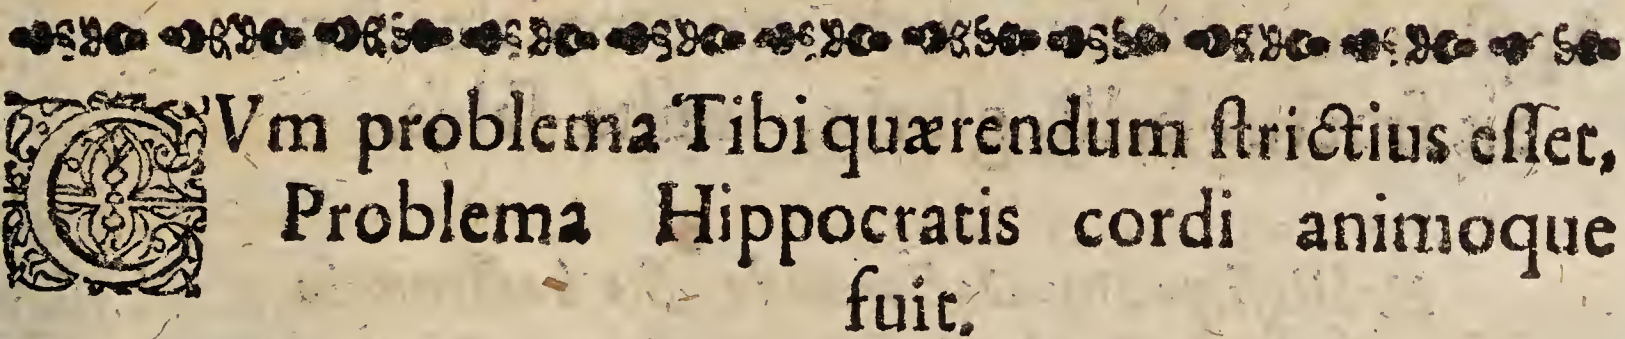 CVm problema Tibi quærendum ſtrictius eſſet,
Problema Hippocratis cordi animoque
fuit.